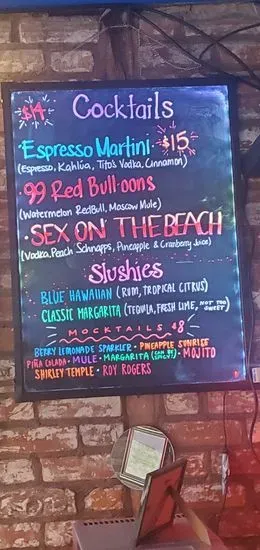 $14 Cocktails
Espresso Martini $15
(Espresso, Kahlúa, Tito's Vodka, Cinnamon)
99 Red Bull-oons
(Watermelon RedBull, Moscow Mule)
• SEX ON THE BEACH
(Vodka, Peach Schnapps, Pineapple & Cranberry Juice)
Slushies
BLUE HAWAIIAN (RUM, TROPICAL CITRUS)
CLASSIC MARGARITA (TEQUILA, FRESH LIME, NOT TOO SWEET)
MOCKTAILS $8
BERRY LEMONADE SPARKLER • PINEAPPLE SUNRISE
PIÑA COLADA • MULE • MARGARITA (CAN BE SPICY) • MOJITO
SHIRLEY TEMPLE • ROY ROGERS